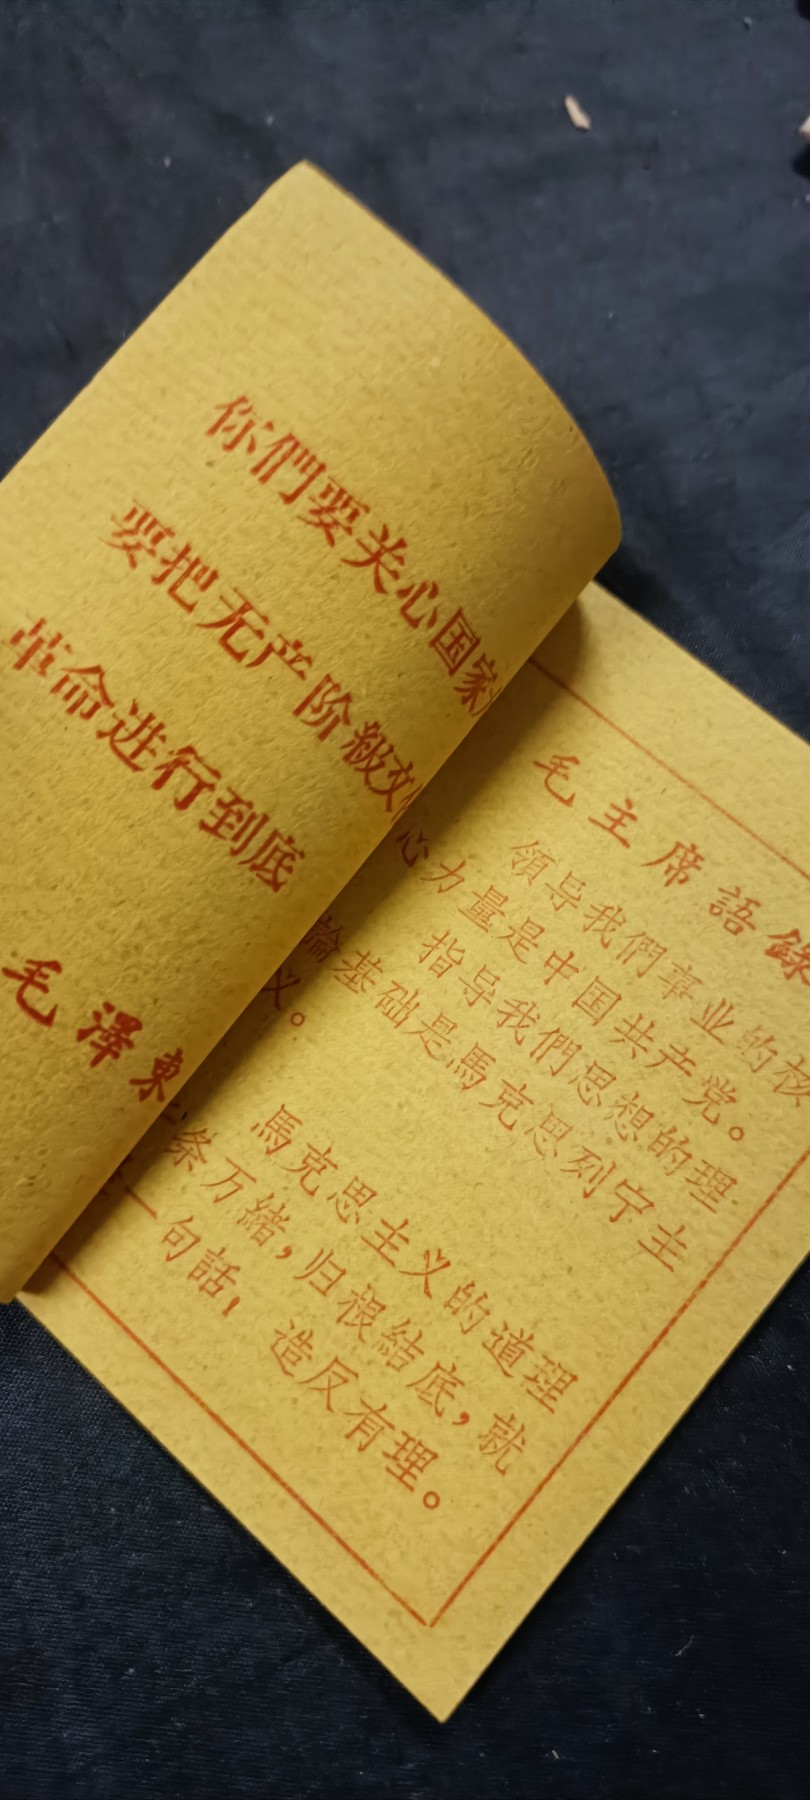 你們要关心国家
要把无产阶級文
革命进行到底
毛澤東
毛主席語錄
領导我們事业的核
心力量是中国共产党。
指导我們思想的理
論基础是馬克思列宁主
义。
馬克思主义的道理
条万緒，归根結底，就
一句話，造反有理。